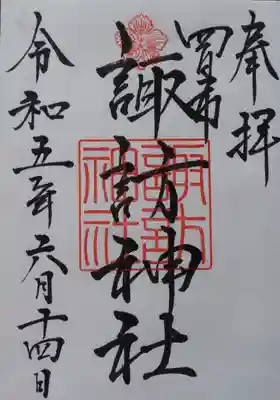 奉拝
四日市
諏訪神社
諏訪神社
令和五年六月十四日